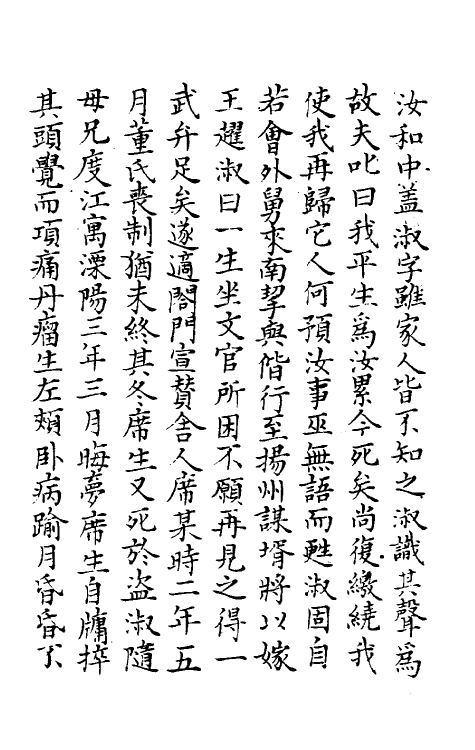 汝和中蓋淑字雖家人皆不知之淑識其聲為
故夫叱曰我平生為汝累今死矣尚復繳繞我
使我再歸它人何預汝事巫無語而甦淑固自
若會外舅來南挈與偕行至揚州謀壻將以嫁
王趯淑曰一生坐文官所困不願再見之得一
武弁足矣遂適閤門宣贊舍人席某時二年五
月董氏喪制猶未終其冬席生又死於盜淑隨
母兄度江寓溧陽三年三月晦夢席生自牗捽
其頭覺而項痛丹瘤生左頰卧病踰月昏昏不